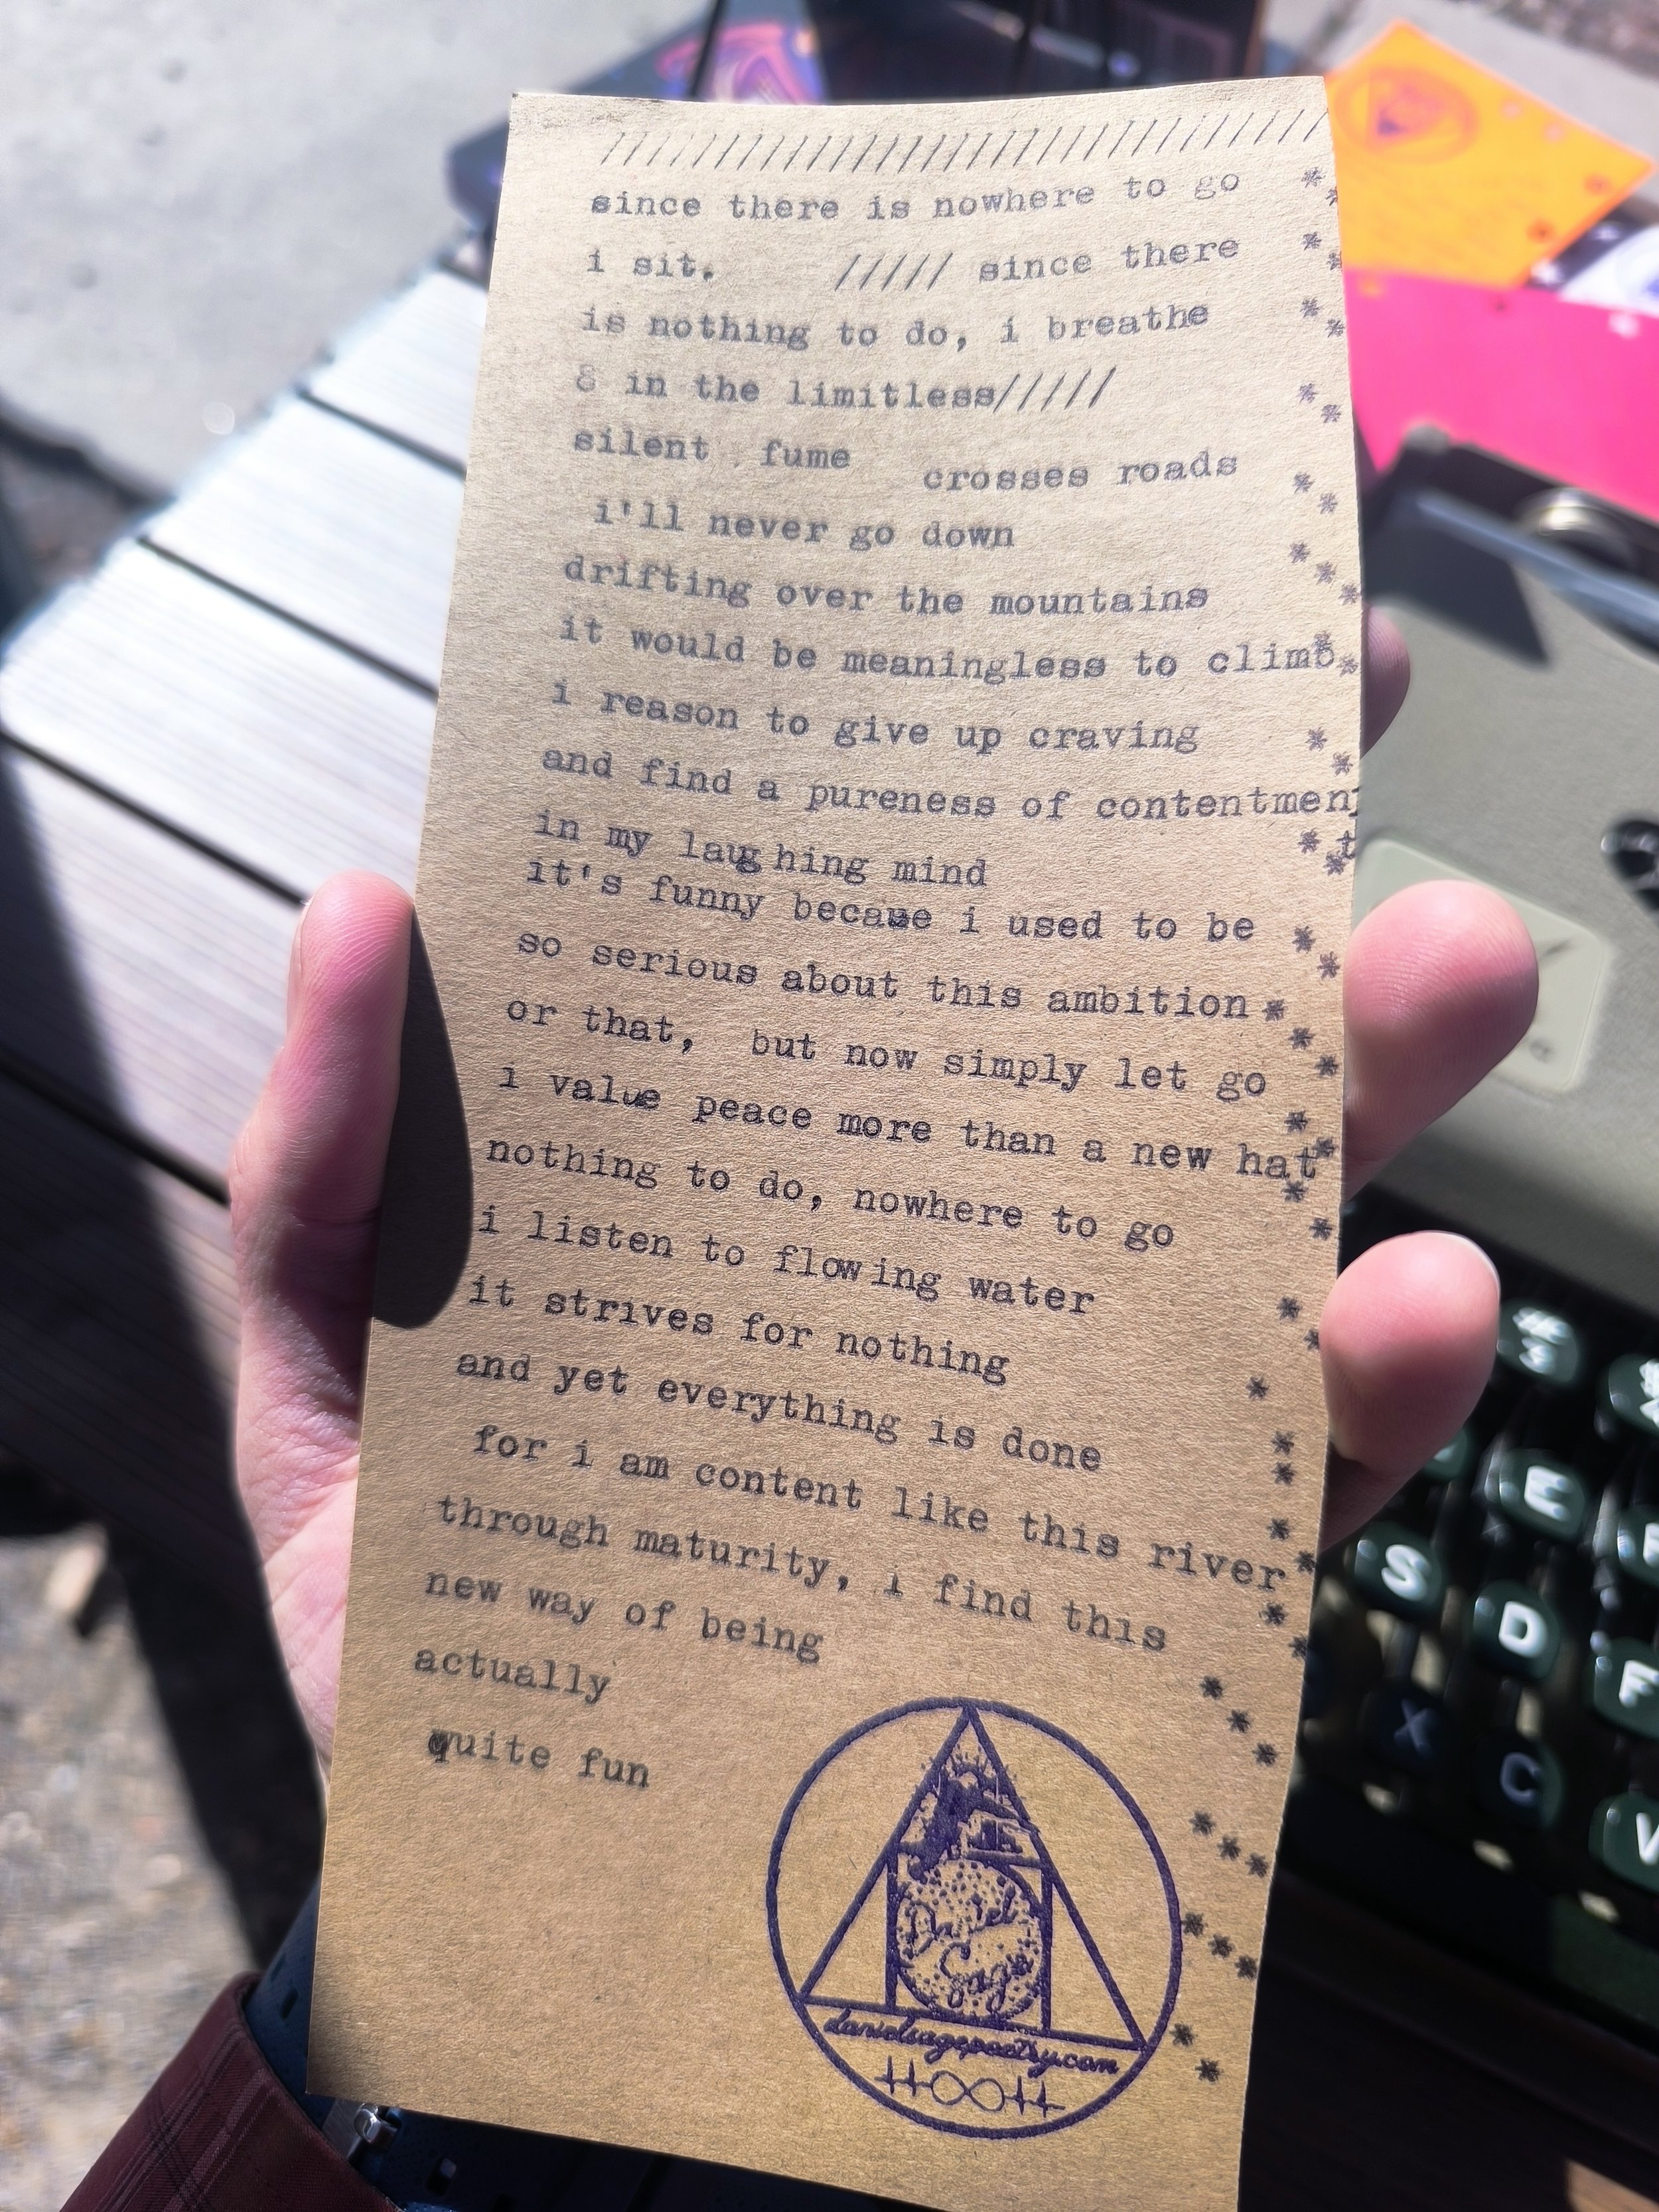 //////////////////////////////
since there is nowhere to go
i sit. ///// since there
is nothing to do, i breathe
& in the limitless/////
silent fume crosses roads
i'll never go down
drifting over the mountains
it would be meaningless to climb
i reason to give up craving
and find a pureness of contentmen
t
in my laughing mind
it's funny because i used to be
so serious about this ambition
or that, but now simply let go
i value peace more than a new hat
nothing to do, nowhere to go
i listen to flowing water
it strives for nothing
and yet everything is done
for i am content like this river
through maturity, i find this
new way of being
actually
quite fun
Daniel
Sage
danielsagepoetry.com
# 3
E
S
D
F
X
C
V